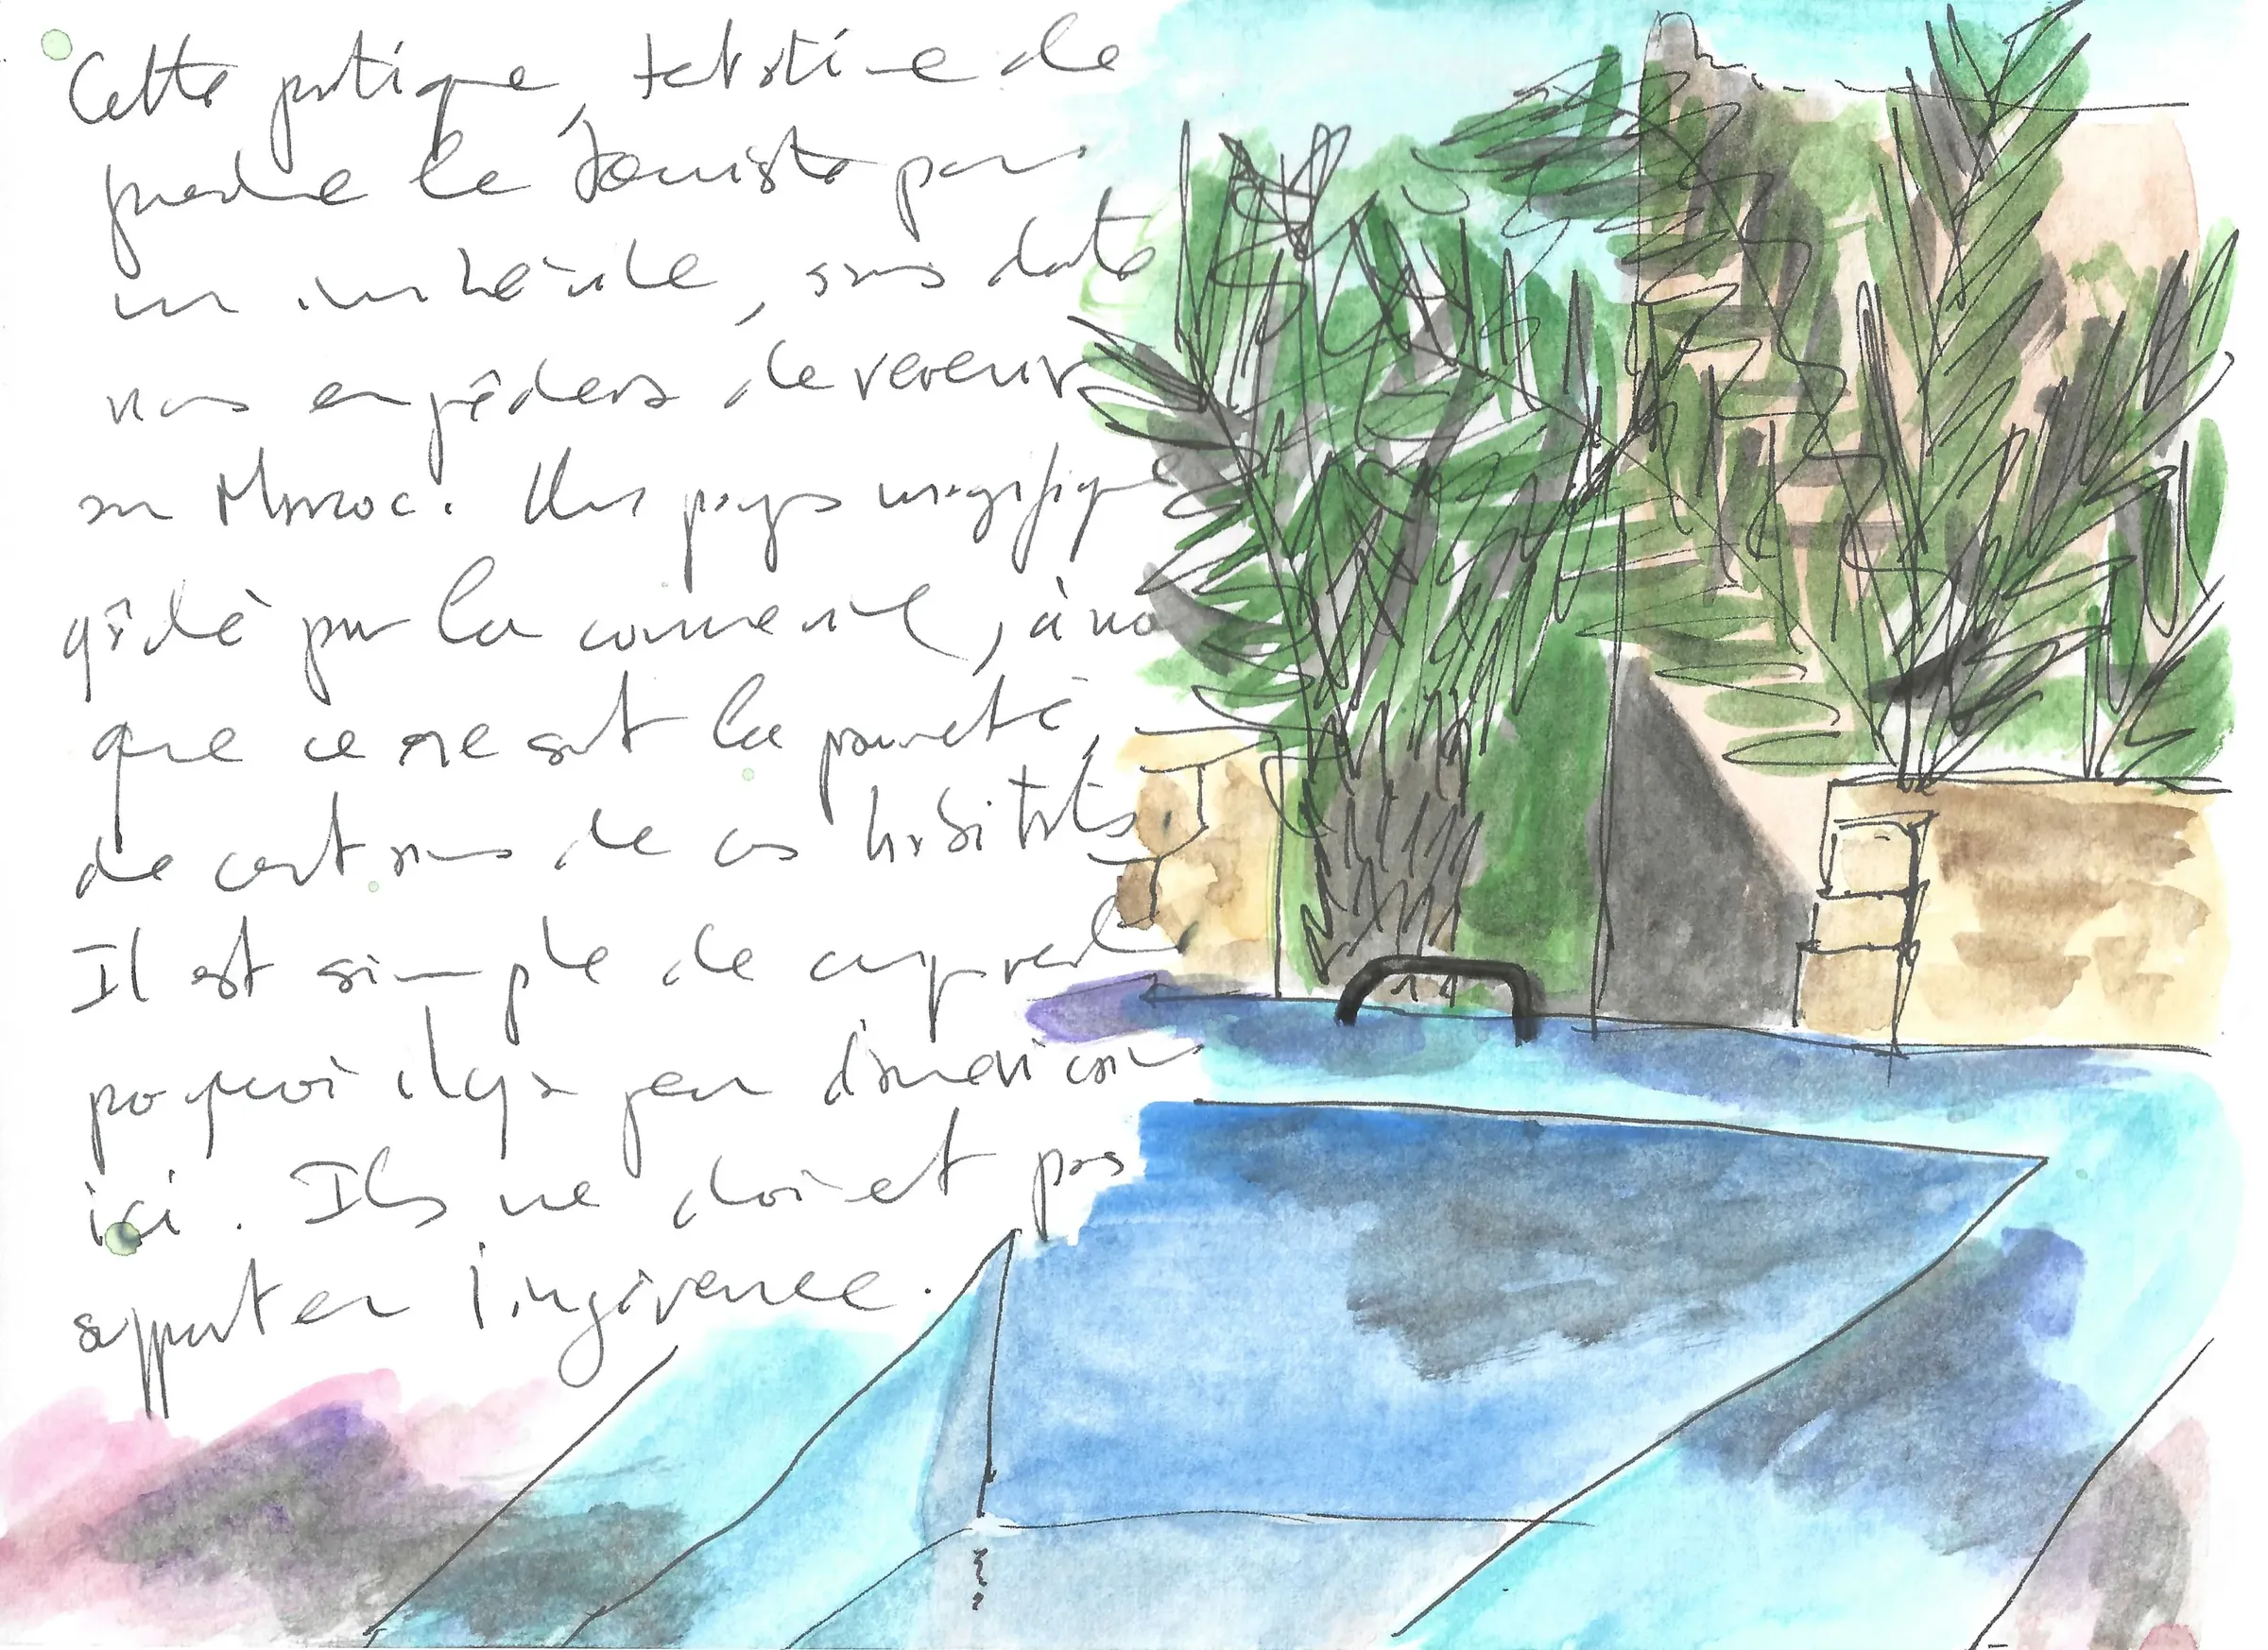 Cette pratique, de
prendre le touriste pour
un imbécile, sans doute
nous empêchera de revenir
au Maroc. Un pays magnifique
gâché par la à
que ce ne soit la pauvreté,
de certains de ces habitats
Il est simple de comprendre
pourquoi il y a peu d'américains
ici. Ils ne doivent pas
supporter l'ingérence.